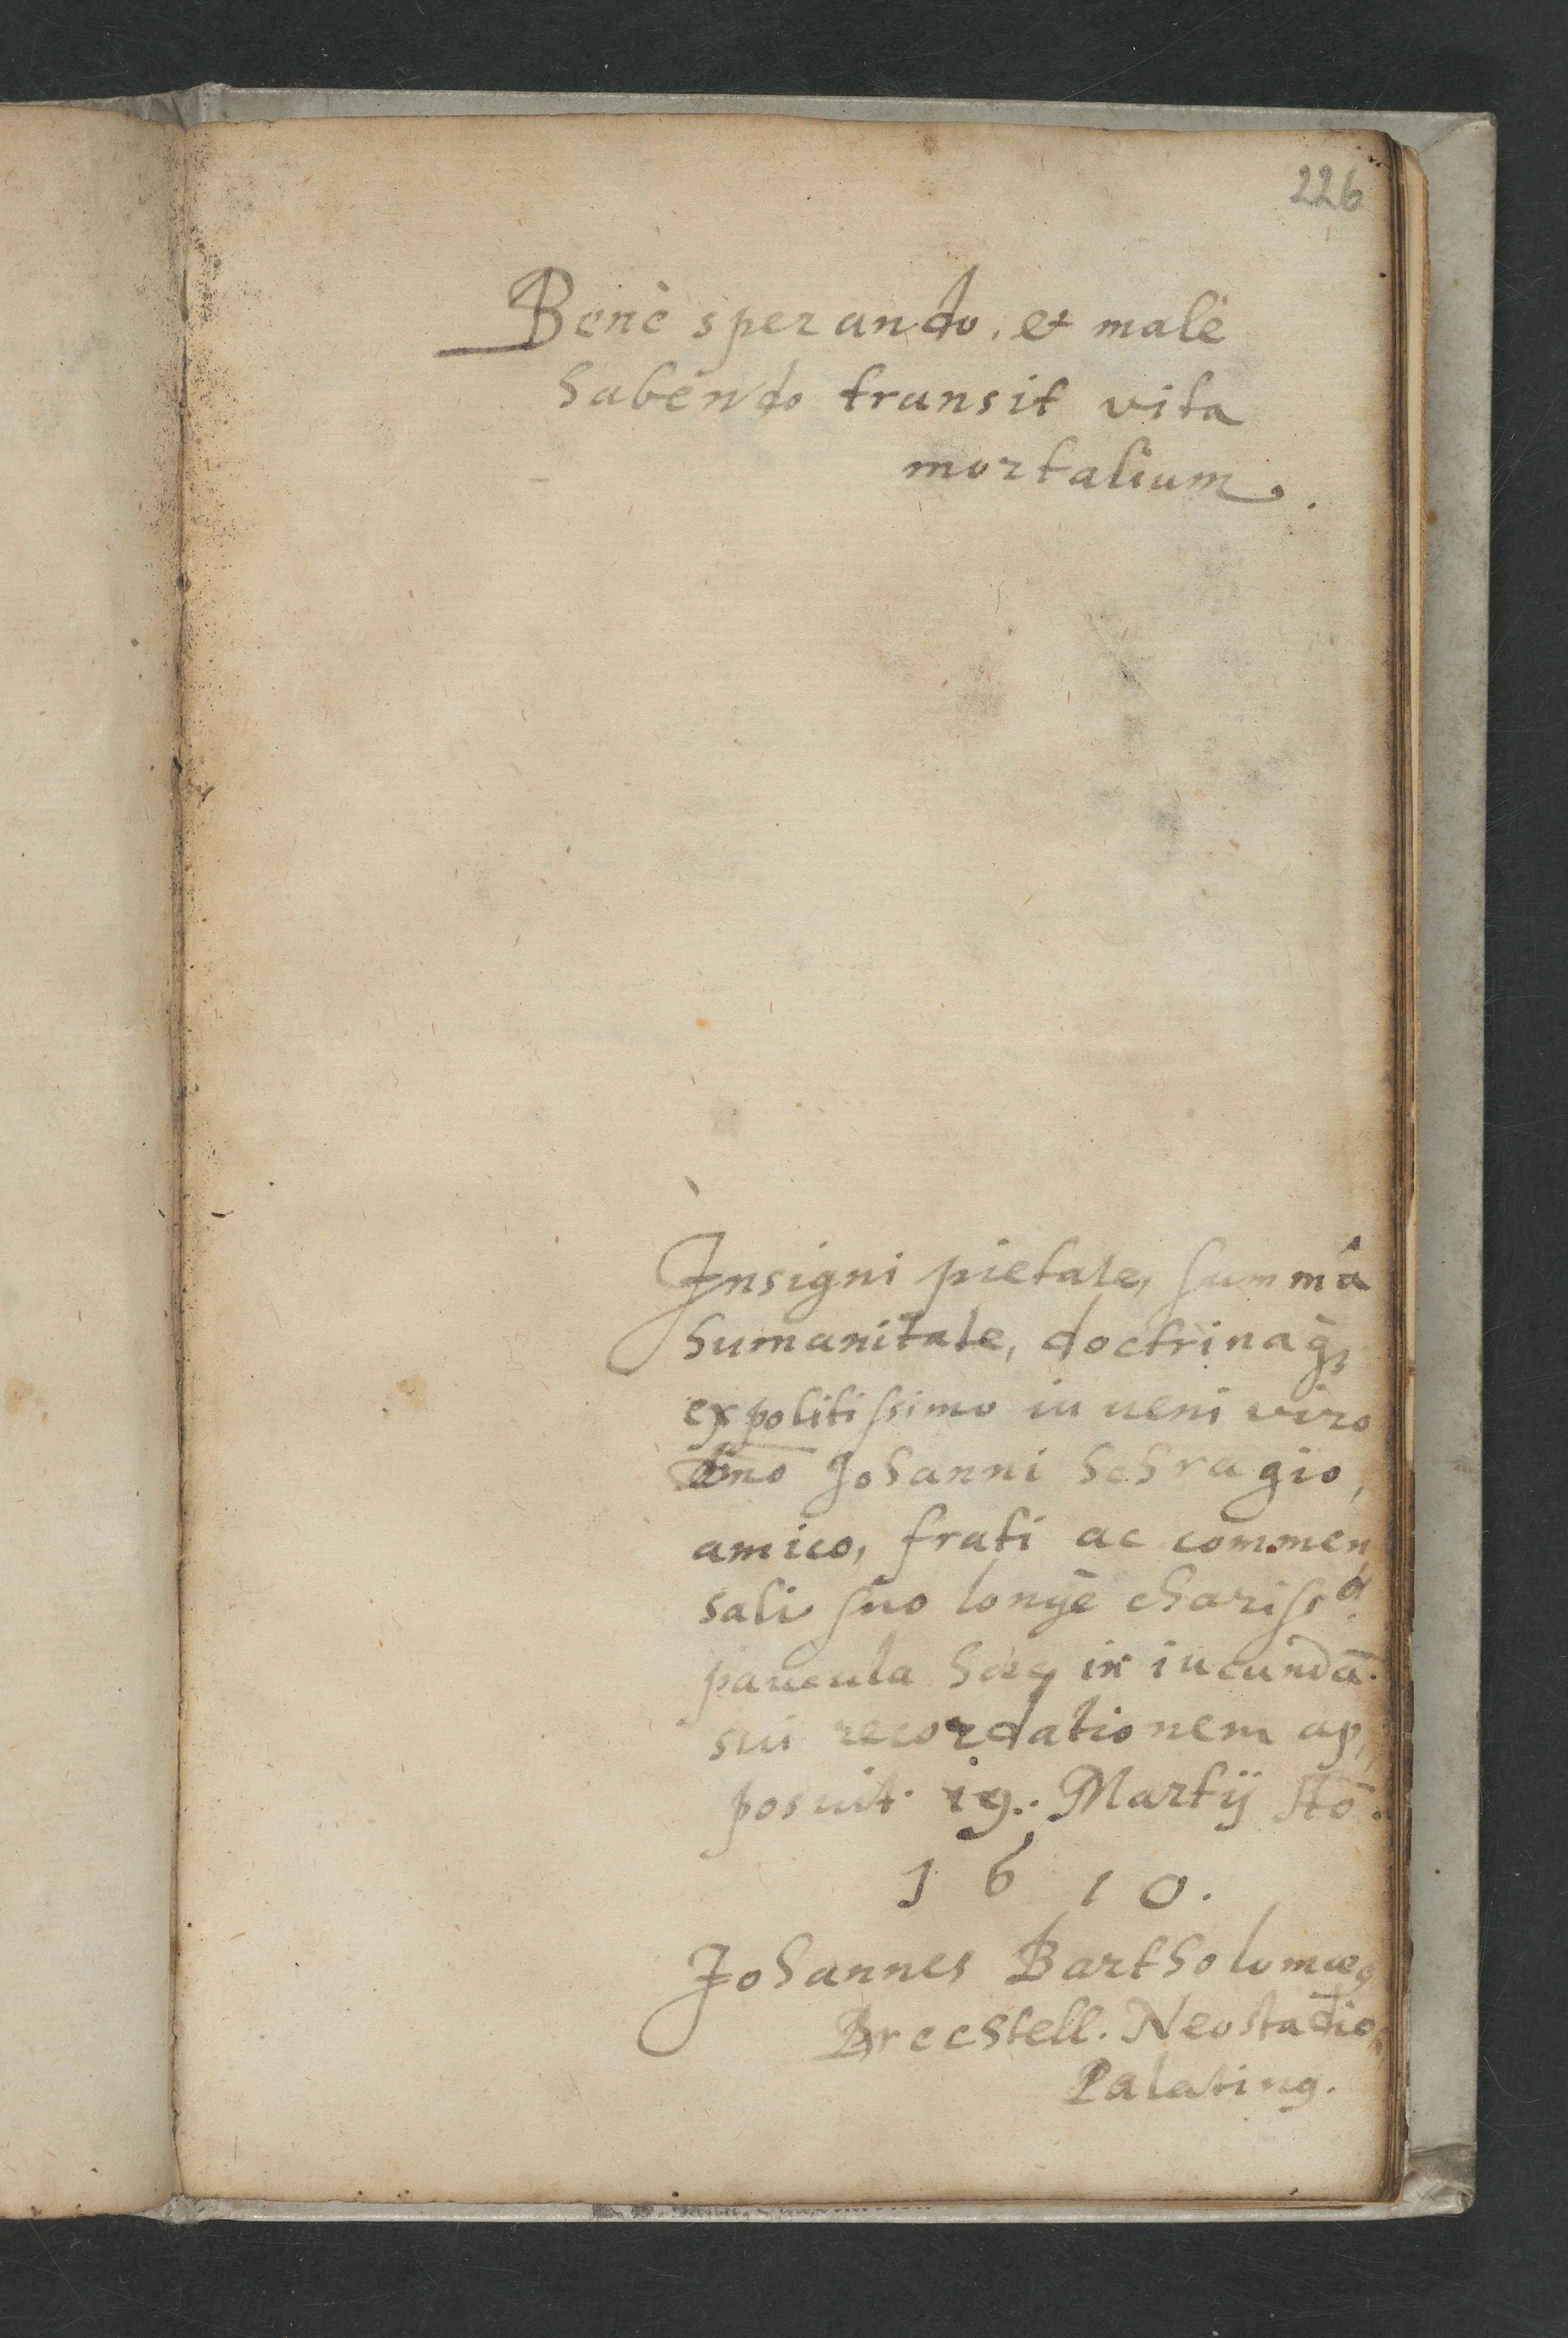 226
Benè sperando, et malè
habendo transit vita
mortalium.
Insigni pietate, summâ
humanitate, doctrinaq́ꝫ
expolitissimo iuueni viro
dn̄o Johanni Schragio,
amico, frati ac commen
sali suo longè chariss⁰.
paucula haec in iucundā
sui recordationem ap,
posuit. 19. Martij
1610.
Johannes Bartholomaeꝰ
Brechtell. Neostadio
Palatinꝰ.